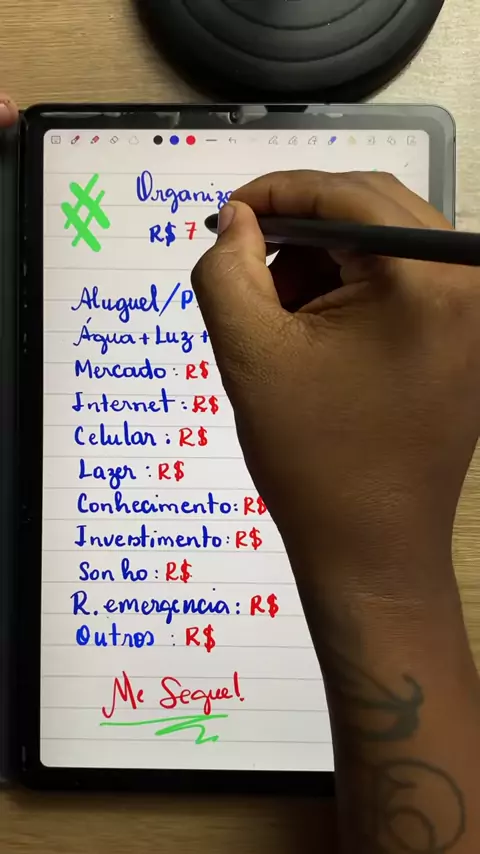 Organiza
R$ 7
Aluguel/P
Água + Luz +
Mercado: R$
Internet: R$
Celular: R$
Lazer: R$
Conhecimento: R$
Investimento: R$
Sonho: R$
R. emergencia: R$
Outros: R$
Me Segue!